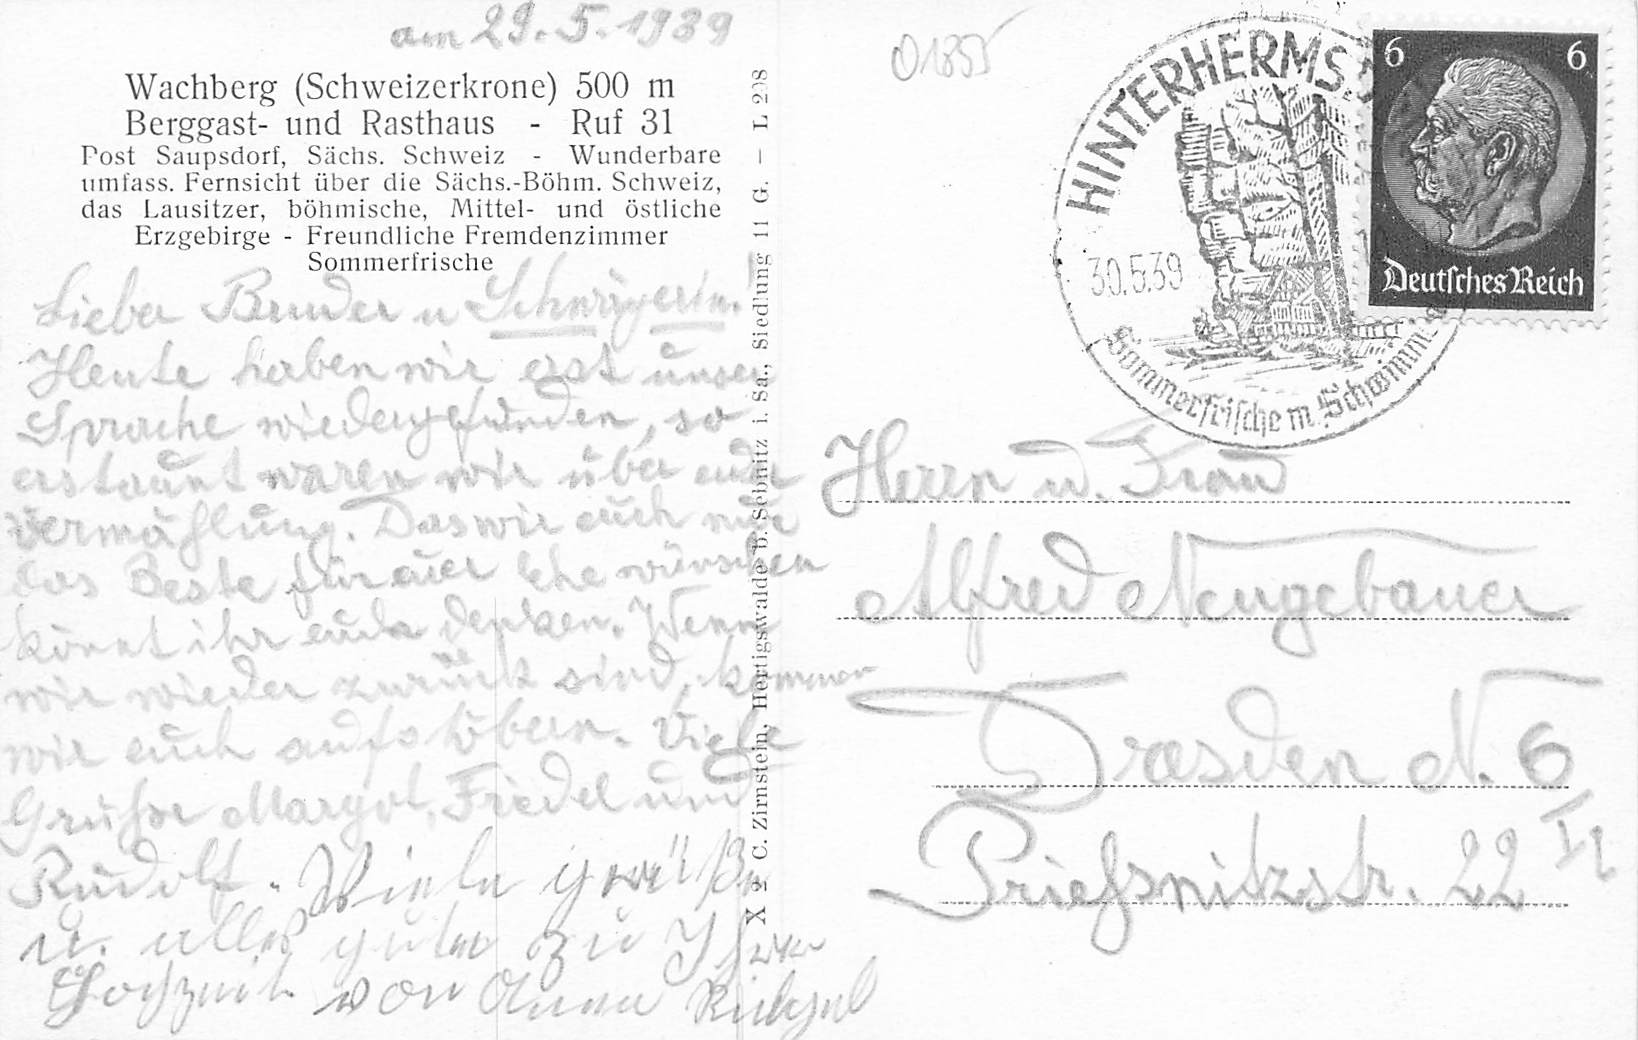 am 29.5.1939
Wachberg (Schweizerkrone) 500 m
Berggast- und Rasthaus - Ruf 31
Post Saupsdorf, Sächs. Schweiz - Wunderbare
umfass. Fernsicht über die Sächs.-Böhm. Schweiz,
das Lausitzer, böhmische, Mittel- und östliche
Erzgebirge - Freundliche Fremdenzimmer
Sommerfrische
Lieber Bruder u Schwägerin!
Heute haben wir erst unsere
Sprache wiedergefunden, so
erstaunt waren wir über eure
Vermählung. Das wir euch nur
das Beste für euer Ehe wünschen
könnt ihr euch denken. Wenn
wir wieder zurück sind, kommen
wir euch aufstöbern. Viele
Grüße Margot, Friedel und
Rudolf. Viele grüße
u. alles gute zu Ihrer
Hochzeit von Anna
X 2 C. Zirnstein, Hertigswalde b. Sebnitz i. Sa., Siedlung 11 G. - L 208
01855
HINTERHERMS
30.5.39
Sommerfrische m. Schwimm
6 6
Deutsches Reich
Herrn u. Frau
Alfred Neugebauer
Dresden N. 6
Prießnitzstr. 22